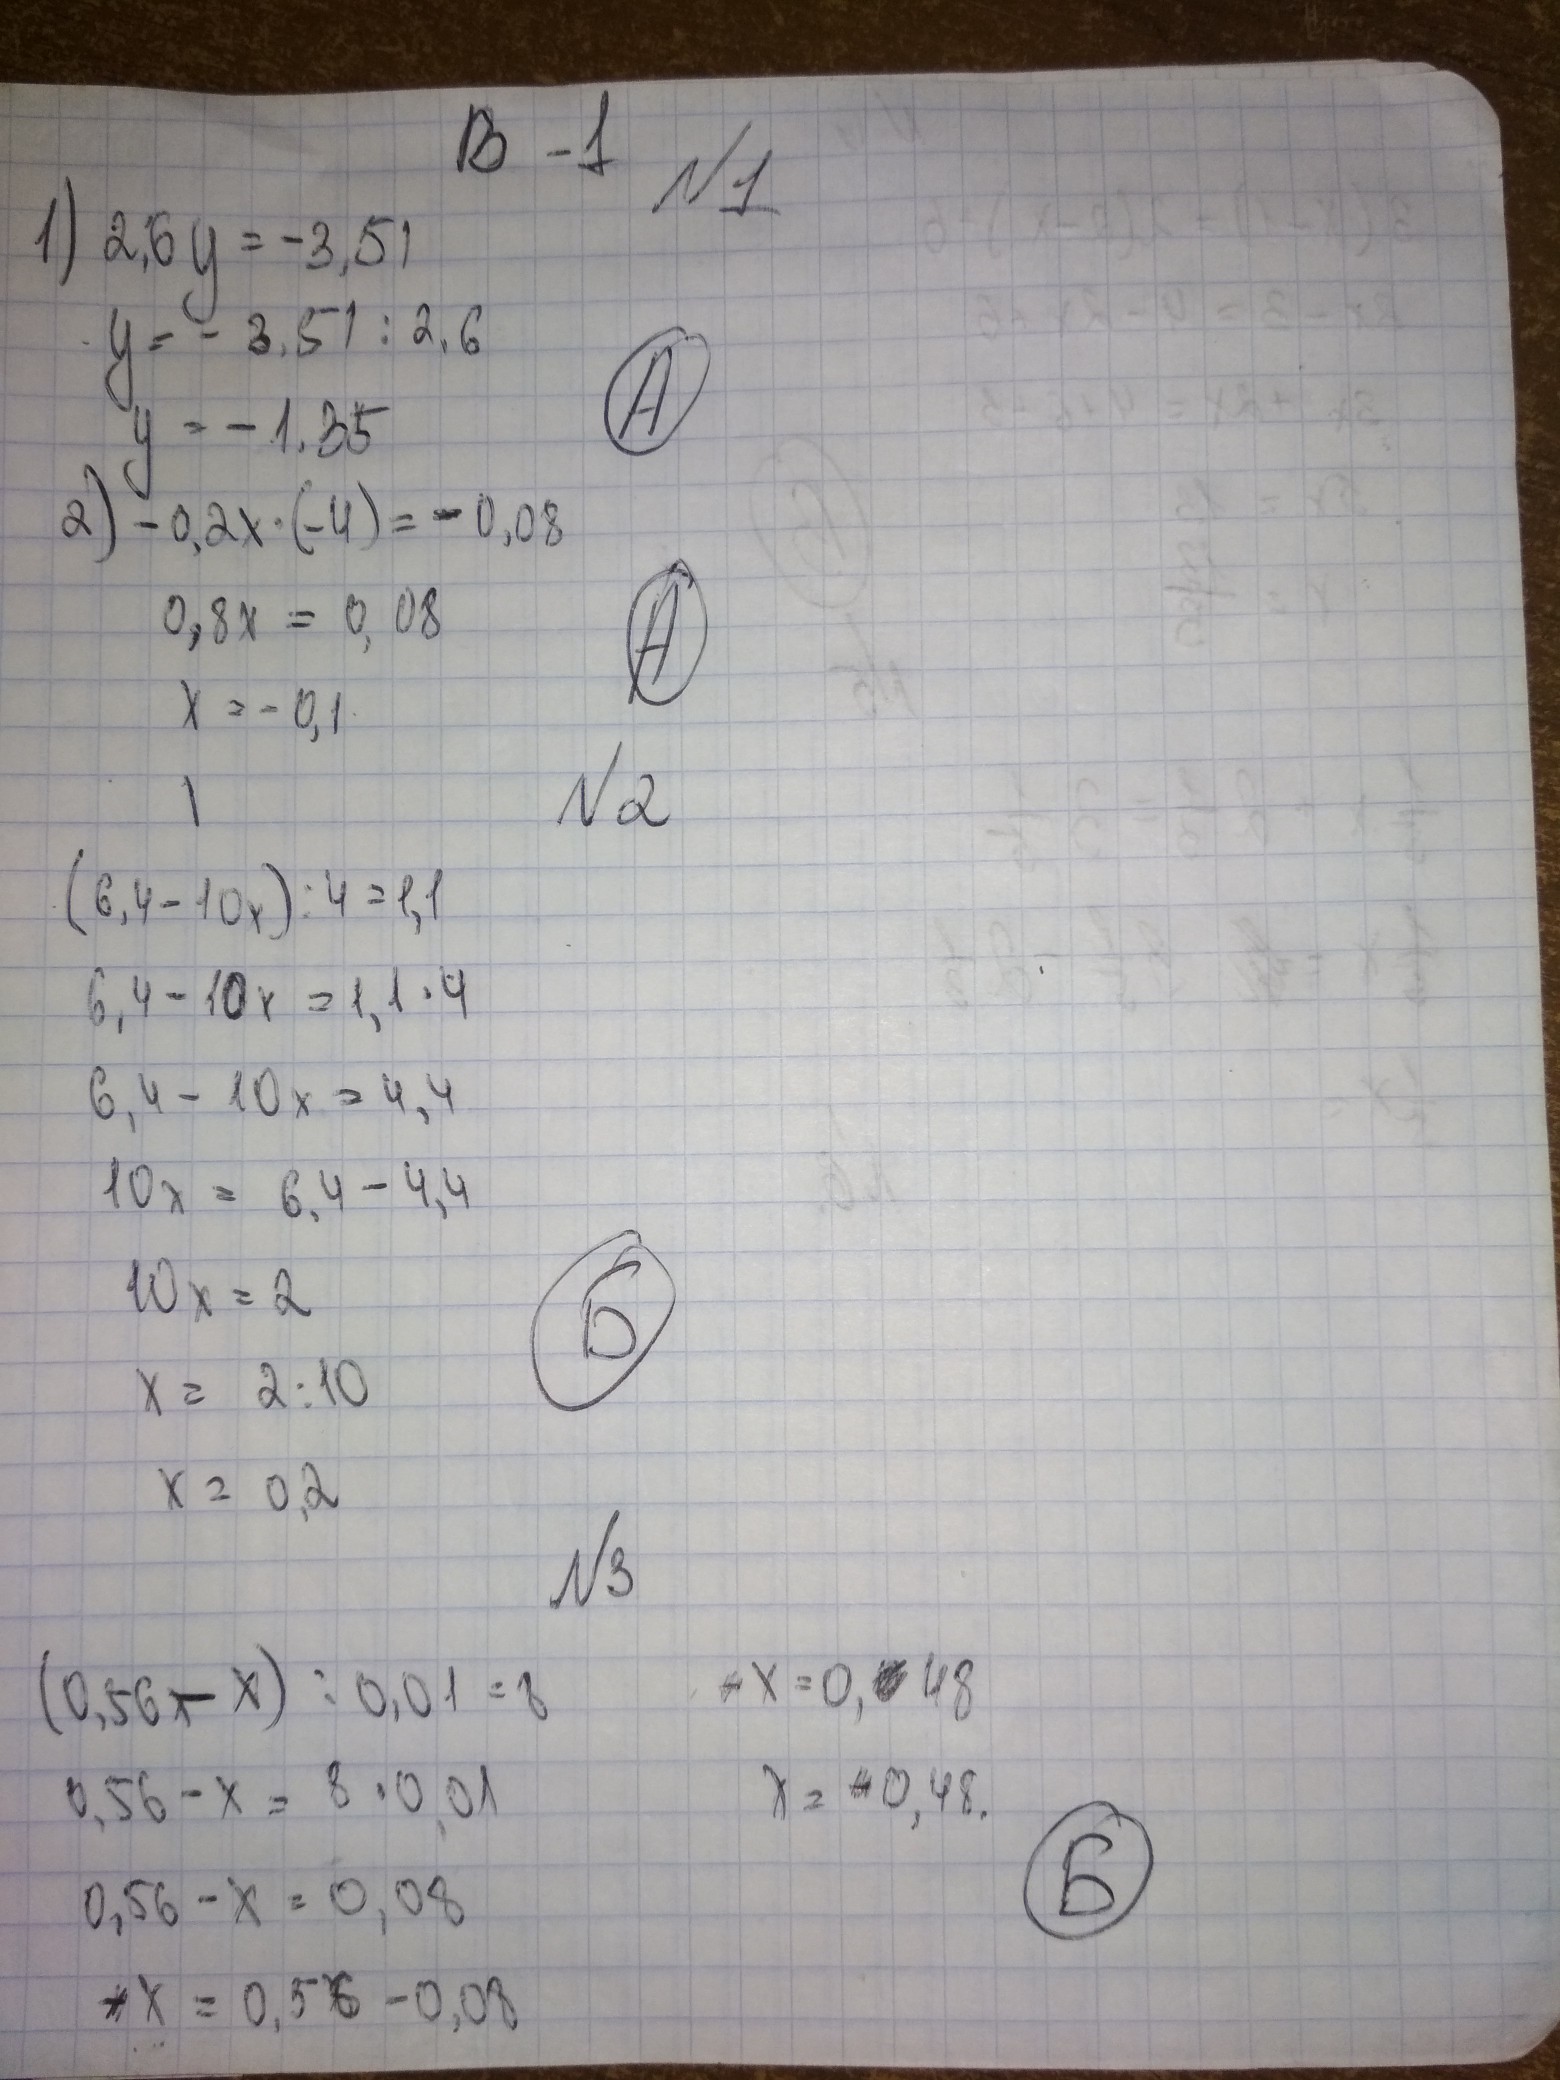 В - 1
№1
1) 2,6y = -3,51
y = - 3.51 : 2.6
y = - 1.35
А
2) -0,2x·(-4) = -0,08
0,8x = 0,08
x = -0,1
А
№2
(6,4 - 10x) : 4 = 1,1
6,4 - 10x = 1,1·4
6,4 - 10x = 4,4
10x = 6,4 - 4,4
10x = 2
x = 2:10
x = 0,2
Б
№3
(0,56 - x) : 0,01 = 8
0,56 - x = 8·0,01
0,56 - x = 0,08
x = 0,56 - 0,08
x = 0,48
x = 0,48.
Б